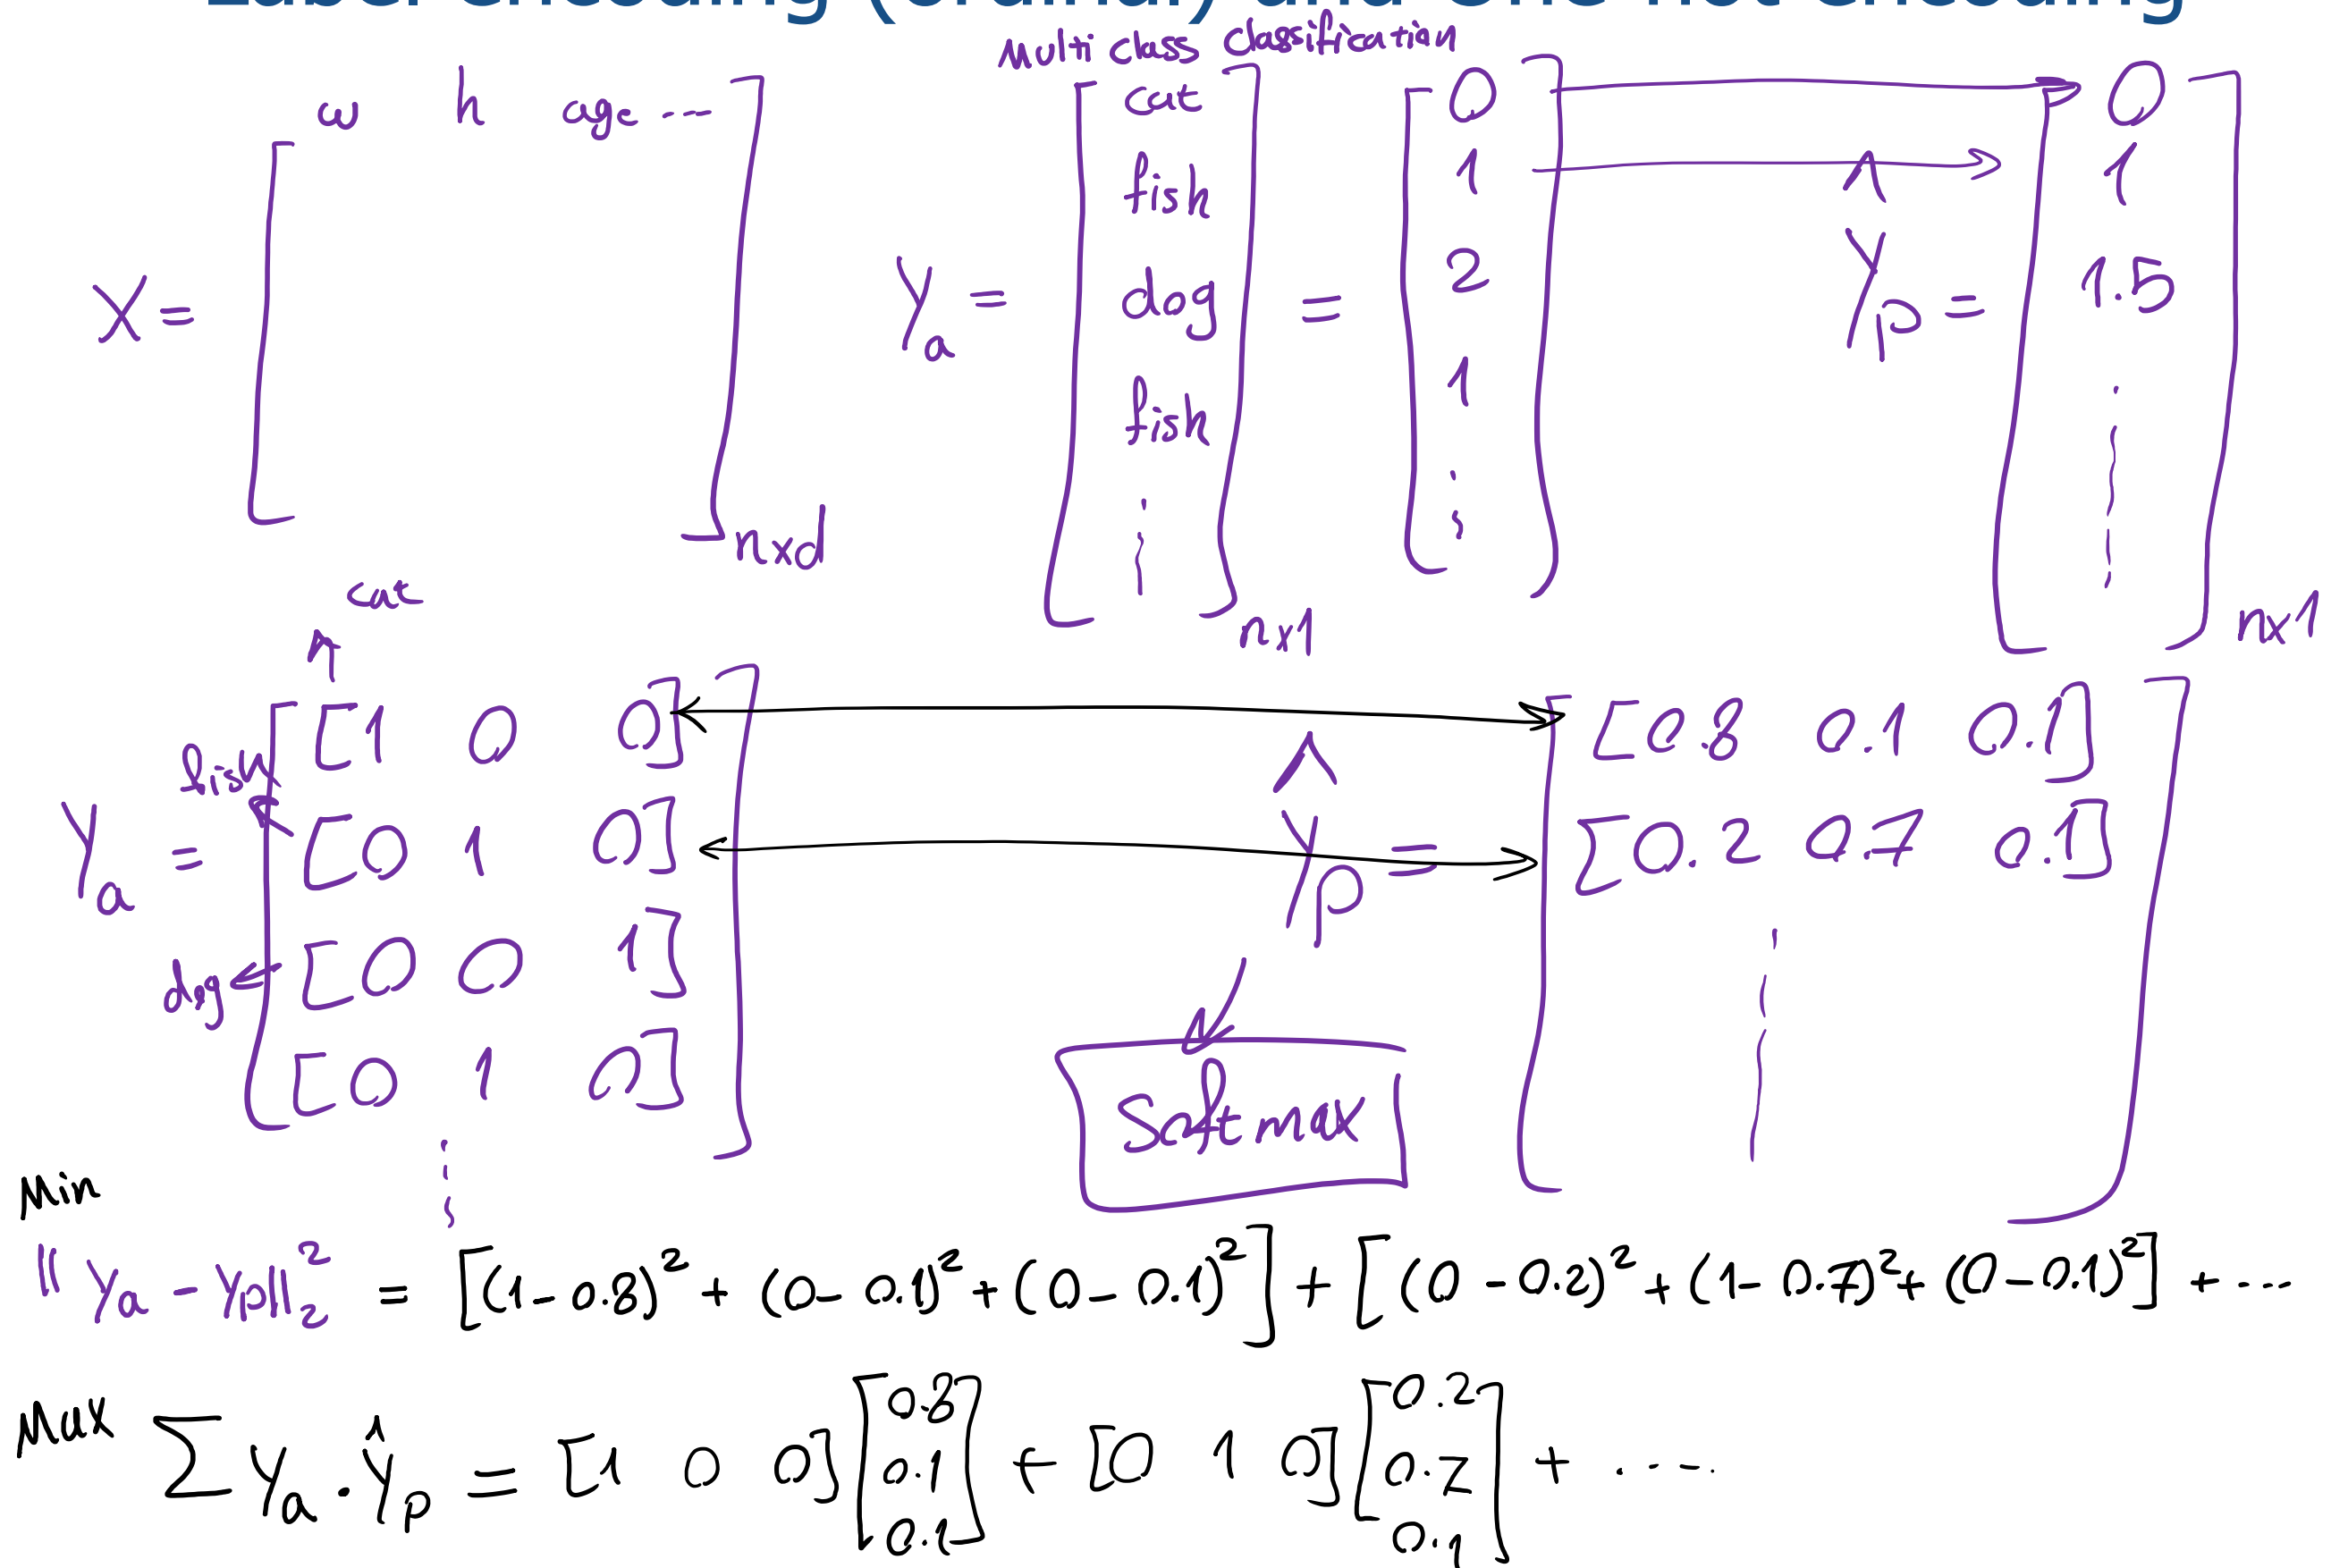 Multi class classification
w h age ...
X = [ ] nxd
Ya = [cat fish dog fish ⋮] nx1 = [0 1 2 1 ⋮]
Ŷp = [0 1 1.5 ⋮] nx1
cat
fish
dog
Ya = [[1 0 0]
[0 1 0]
[0 0 1]
[0 1 0]
⋮]
Ŷp = [[0.8 0.1 0.1]
[0.2 0.7 0.1]
⋮]
Softmax
Min
||Ya - Yp||₂² = [(1-0.8)² + (0-0.1)² + (0-0.1)²] + [(0-0.2)² + (1-0.7)² + (0-0.1)²] + ...
Max
∑ Ya · Ŷp = [1 0 0] [0.8 0.1 0.1] + [0 1 0] [0.2 0.7 0.1] + ....